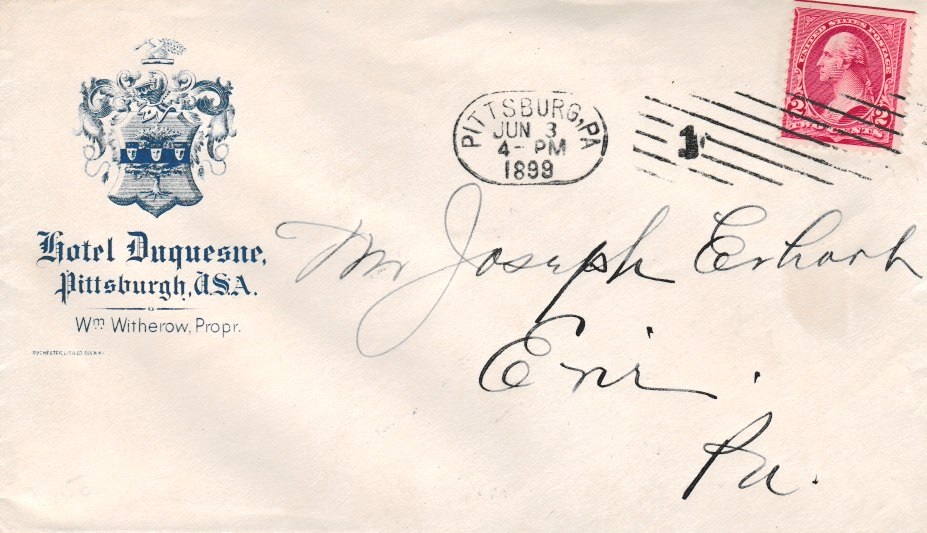 Hotel Duquesne,
Pittsburgh, USA.
Wm Witherow, Propr.
PITTSBURG, PA
JUN 3
4- PM
1899
1
UNITED STATES POSTAGE
2 2
TWO CENTS
Mr Joseph Erhart
Erie
Pa.